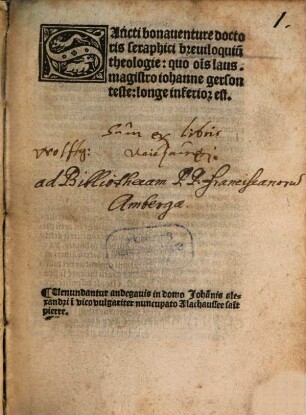 1.
SAncti bonauenture docto
ris seraphici breuiloquiũ
theologie: quo oīs laus.
magistro iohanne gerson
teste: longe inferior est.
Sum ex libris
Wolffg:
ad Bibliothecam P. P. Franciscanorũ
Ambergæ.
¶ Uenundantur andegauis in domo Johãnis ale-
xandri ī vico vulgariter nuncupato Lachausser saīt
pierre.